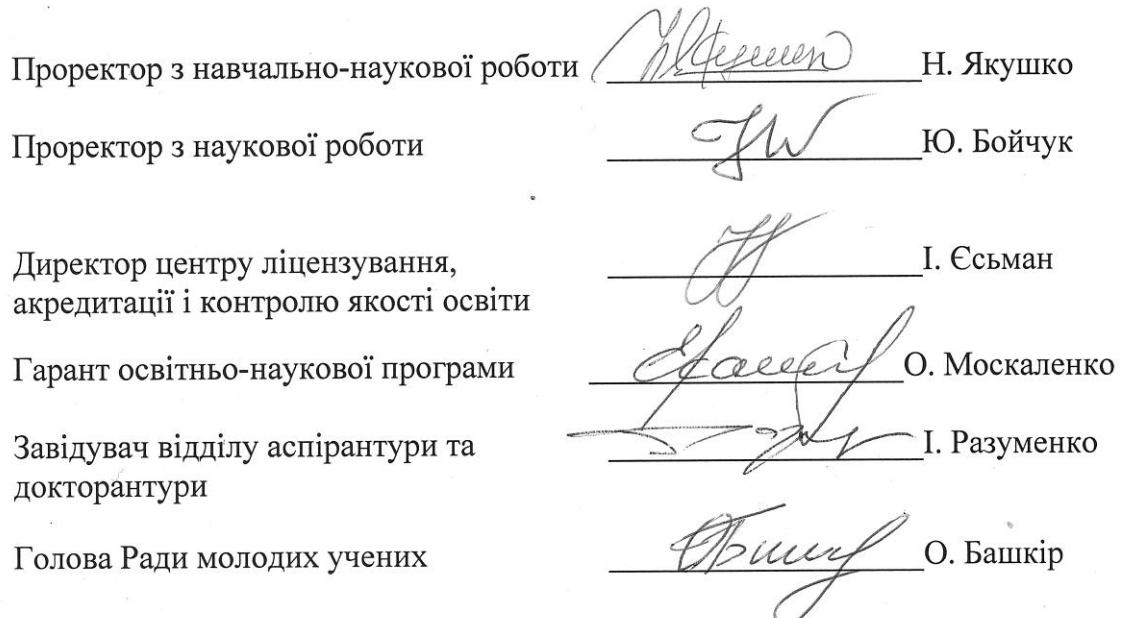 Проректор з навчально-наукової роботи Н. Якушко
Проректор з наукової роботи Ю. Бойчук
Директор центру ліцензування, І. Єсьман
акредитації і контролю якості освіти
Гарант освітньо-наукової програми О. Москаленко
Завідувач відділу аспірантури та І. Разуменко
докторантури
Голова Ради молодих учених О. Башкір